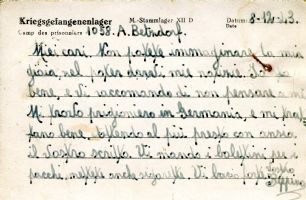 Kriegsgefangenenlager M. Stammlager XII D Datum: 8-12-43
Camp des prisonniers 1058. A. Date
Miei cari. Non potete immaginare la mia
gioia nel poter darvi mie notizie. Io sto
bene, e vi raccomando di non pensare a me
Mi trovo prigioniero in Germania, e mi trat-
tano bene. Attendo al più presto con ansia
il vostro scritto. Vi mando i bolettini per i
pacchi, mettete anche sigarette. Vi bacio forte
Vostro
Peppino